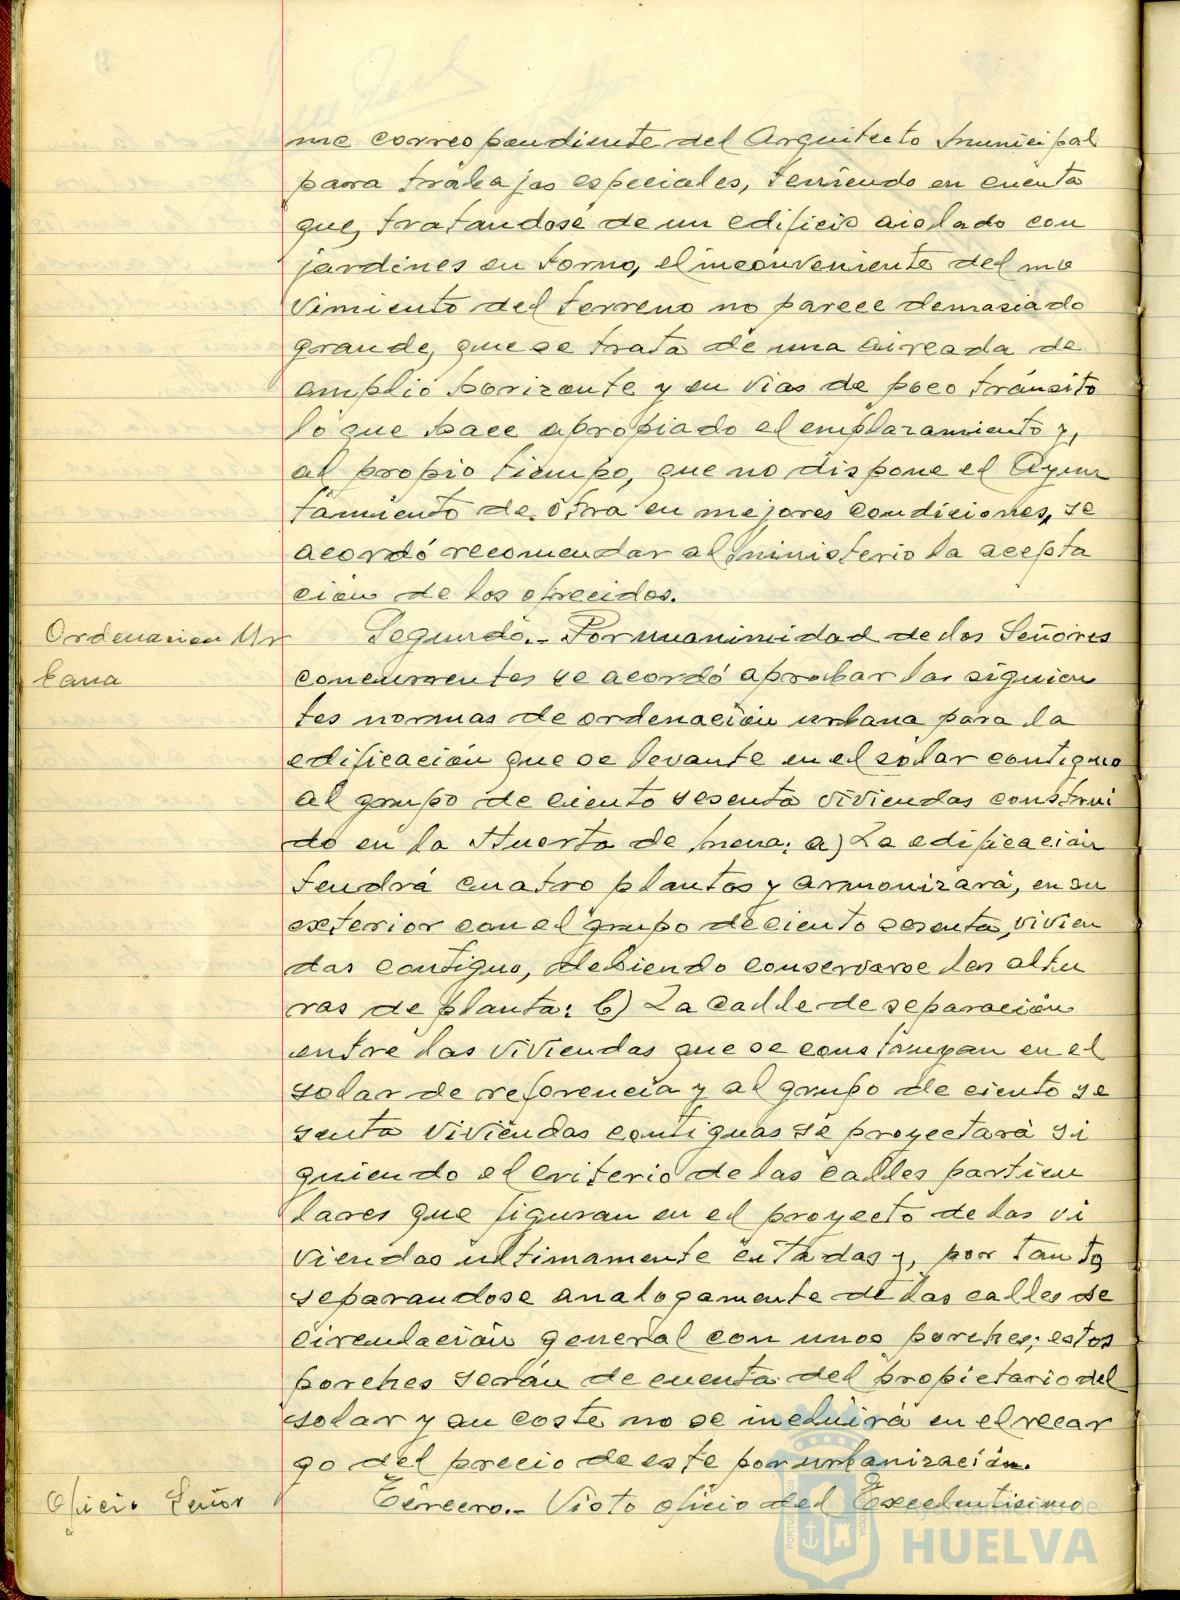 me correspondiente del Arquitecto Municipal
para trabajos especiales, teniendo en cuenta
que, tratandose de un edificio aislado con
jardines en torno, el inconveniente del mo
vimiento del terreno no parece demasiado
grande, que se trata de una aireada de
amplio horizonte y en vias de poco tránsito
lo que hace apropiado el emplazamiento y,
al propio tiempo, que no dispone el Ayun
tamiento de otra en mejores condiciones, se
acordó recomendar al Ministerio la acepta
ción de los ofrecidos.
Ordenacion Ur
bana
Segundo.- Por unanimidad de los Señores
concurrentes se acordó aprobar las siguien
tes normas de ordenación urbana para la
edificación que se levante en el solar contiguo
al grupo de ciento sesenta viviendas construi
do en la Huerta de Mena: a) La edificación
tendrá cuatro plantas y armonizará, en su
exterior con el grupo de ciento sesenta, vivien
das contiguo, debiendo conservarse las altu
ras de planta: b) La calle de separación
entre las viviendas que se construyan en el
solar de referencia y al grupo de ciento se
senta viviendas contiguas se proyectará si
guiendo el criterio de las calles particu
lares que figuran en el proyecto de las vi
viendas ultimamente citadas y, por tanto,
separandose analogamente de las calles de
circulación general con unos porches; estos
porches serán de cuenta del propietario del
solar y su coste no se incluirá en el recar
go del precio de este por urbanización.
Oficio Señor
Tercero.- Visto oficio del Excelentisimo
Ayuntamiento de
HUELVA